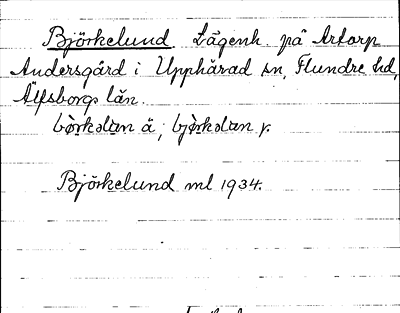 Björkelund Lägenh. på Artorp
Andersgård i Upphärad sn, Flundre hd,
Älfsborgs län.
bö̀rkəlɑn ä; bjö̀rkəlɑn y.
Björkelund ml 1934.